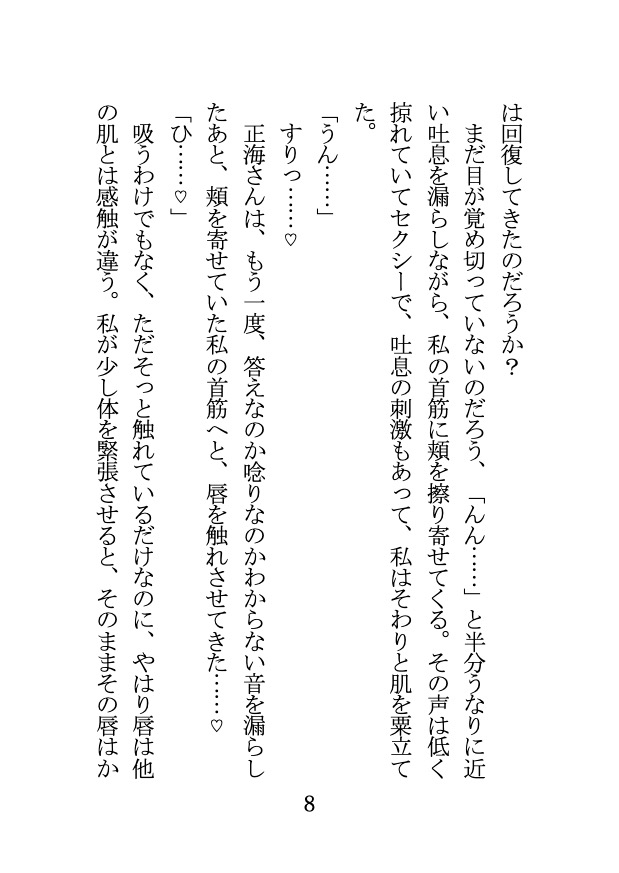 は回復してきたのだろうか？
　まだ目が覚め切っていないのだろう、「んん……」と半分うなりに近
い吐息を漏らしながら、私の首筋に頬を擦り寄せてくる。その声は低く
掠れていてセクシーで、吐息の刺激もあって、私はそわりと肌を粟立て
た。
「うん……」
　すりっ……♡
　正海さんは、もう一度、答えなのか唸りなのかわからない音を漏らし
たあと、頬を寄せていた私の首筋へと、唇を触れさせてきた……♡
「ひ……♡」
　吸うわけでもなく、ただそっと触れているだけなのに、やはり唇は他
の肌とは感触が違う。私が少し体を緊張させると、そのままその唇はか
8